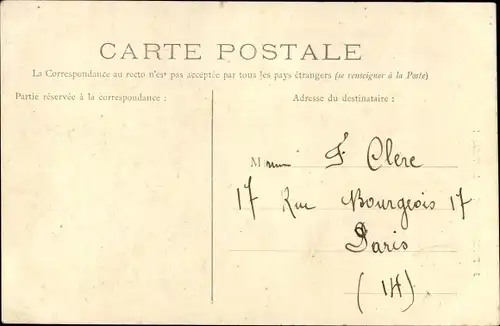 CARTE POSTALE
La Correspondance au recto n'est pas acceptée par tous les pays étrangers (se renseigner à la Poste)
Partie réservée à la correspondance :
Adresse du destinataire :
M F. Clere
17 Rue Bourgeois 17
Paris
(14)